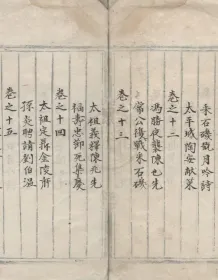 采石磯觀月吟詩
太平城陶安献策
卷之十二
馮勝夜襲陳也先
常公復戰采石磯
卷之十三
太祖義釋陳兆先
福壽忠鄧死集慶
卷之十四
太祖定鼎金陵府
孫炎聘請劉伯温
卷之十五